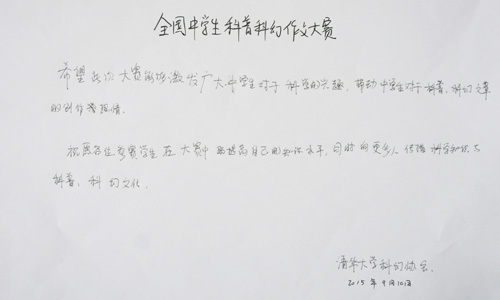 全国中学生科普科幻作文大赛
希望此次大赛能够激发广大中学生对于科学的兴趣，带动中学生对于科普、科幻文章
的创作热情。
祝愿各位参赛学生在大赛中能提高自己的知识水平，同时向更多人传播科学知识与
科普、科幻文化。
清华大学科幻协会
2015年9月10日